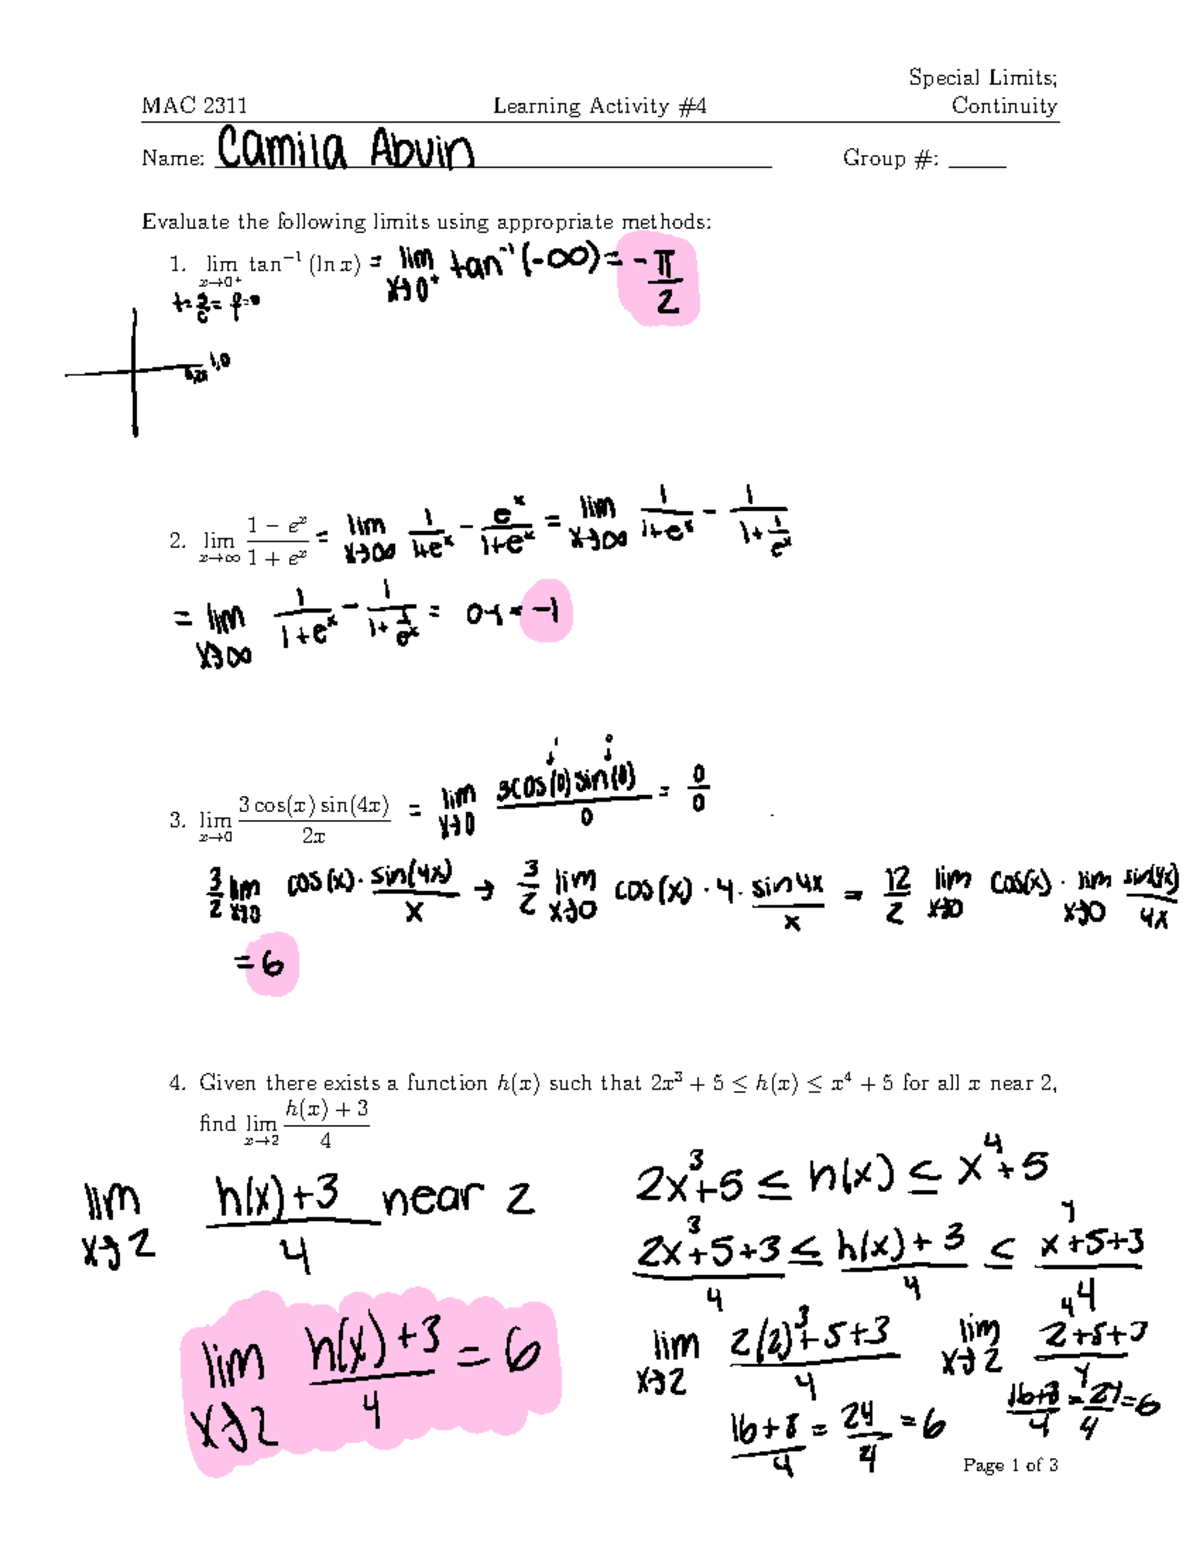 Special Limits;
MAC 2311 Learning Activity #4 Continuity
Name: Camila Abuin Group #: ____
Evaluate the following limits using appropriate methods:
1. lim x→0⁺ tan⁻¹ (ln x) = lim x→0⁺ tan⁻¹(-∞) = -π/2
1,0
2. lim x→∞ (1 − eˣ)/(1 + eˣ) = lim x→∞ 1/(1+eˣ) - eˣ/(1+eˣ) = lim x→∞ 1/(1+eˣ) - 1/(1+1/eˣ)
= lim x→∞ 1/(1+eˣ) - 1/(1+1/eˣ) = 0-1 = -1
3. lim x→0 (3 cos(x) sin(4x))/(2x) = lim x→0 (3cos(0)sin(0))/0 = 0/0
3/2 lim x→0 cos(x) · sin(4x)/x → 3/2 lim x→0 cos(x) · 4 · sin4x/x = 12/2 lim x→0 cos(x) · lim x→0 sin(4x)/4x
= 6
4. Given there exists a function h(x) such that 2x³ + 5 ≤ h(x) ≤ x⁴ + 5 for all x near 2,
find lim x→2 (h(x) + 3)/4
lim x→2 (h(x)+3)/4 near 2
2x³+5 ≤ h(x) ≤ x⁴+5
(2x³+5+3)/4 ≤ (h(x)+3)/4 ≤ (x⁴+5+3)/4
lim x→2 (h(x)+3)/4 = 6
lim x→2 (2(2)³+5+3)/4 lim x→2 (2⁴+5+3)/4
(16+8)/4 = 24/4 = 6 (16+8)/4 = 24/4 = 6
Page 1 of 3